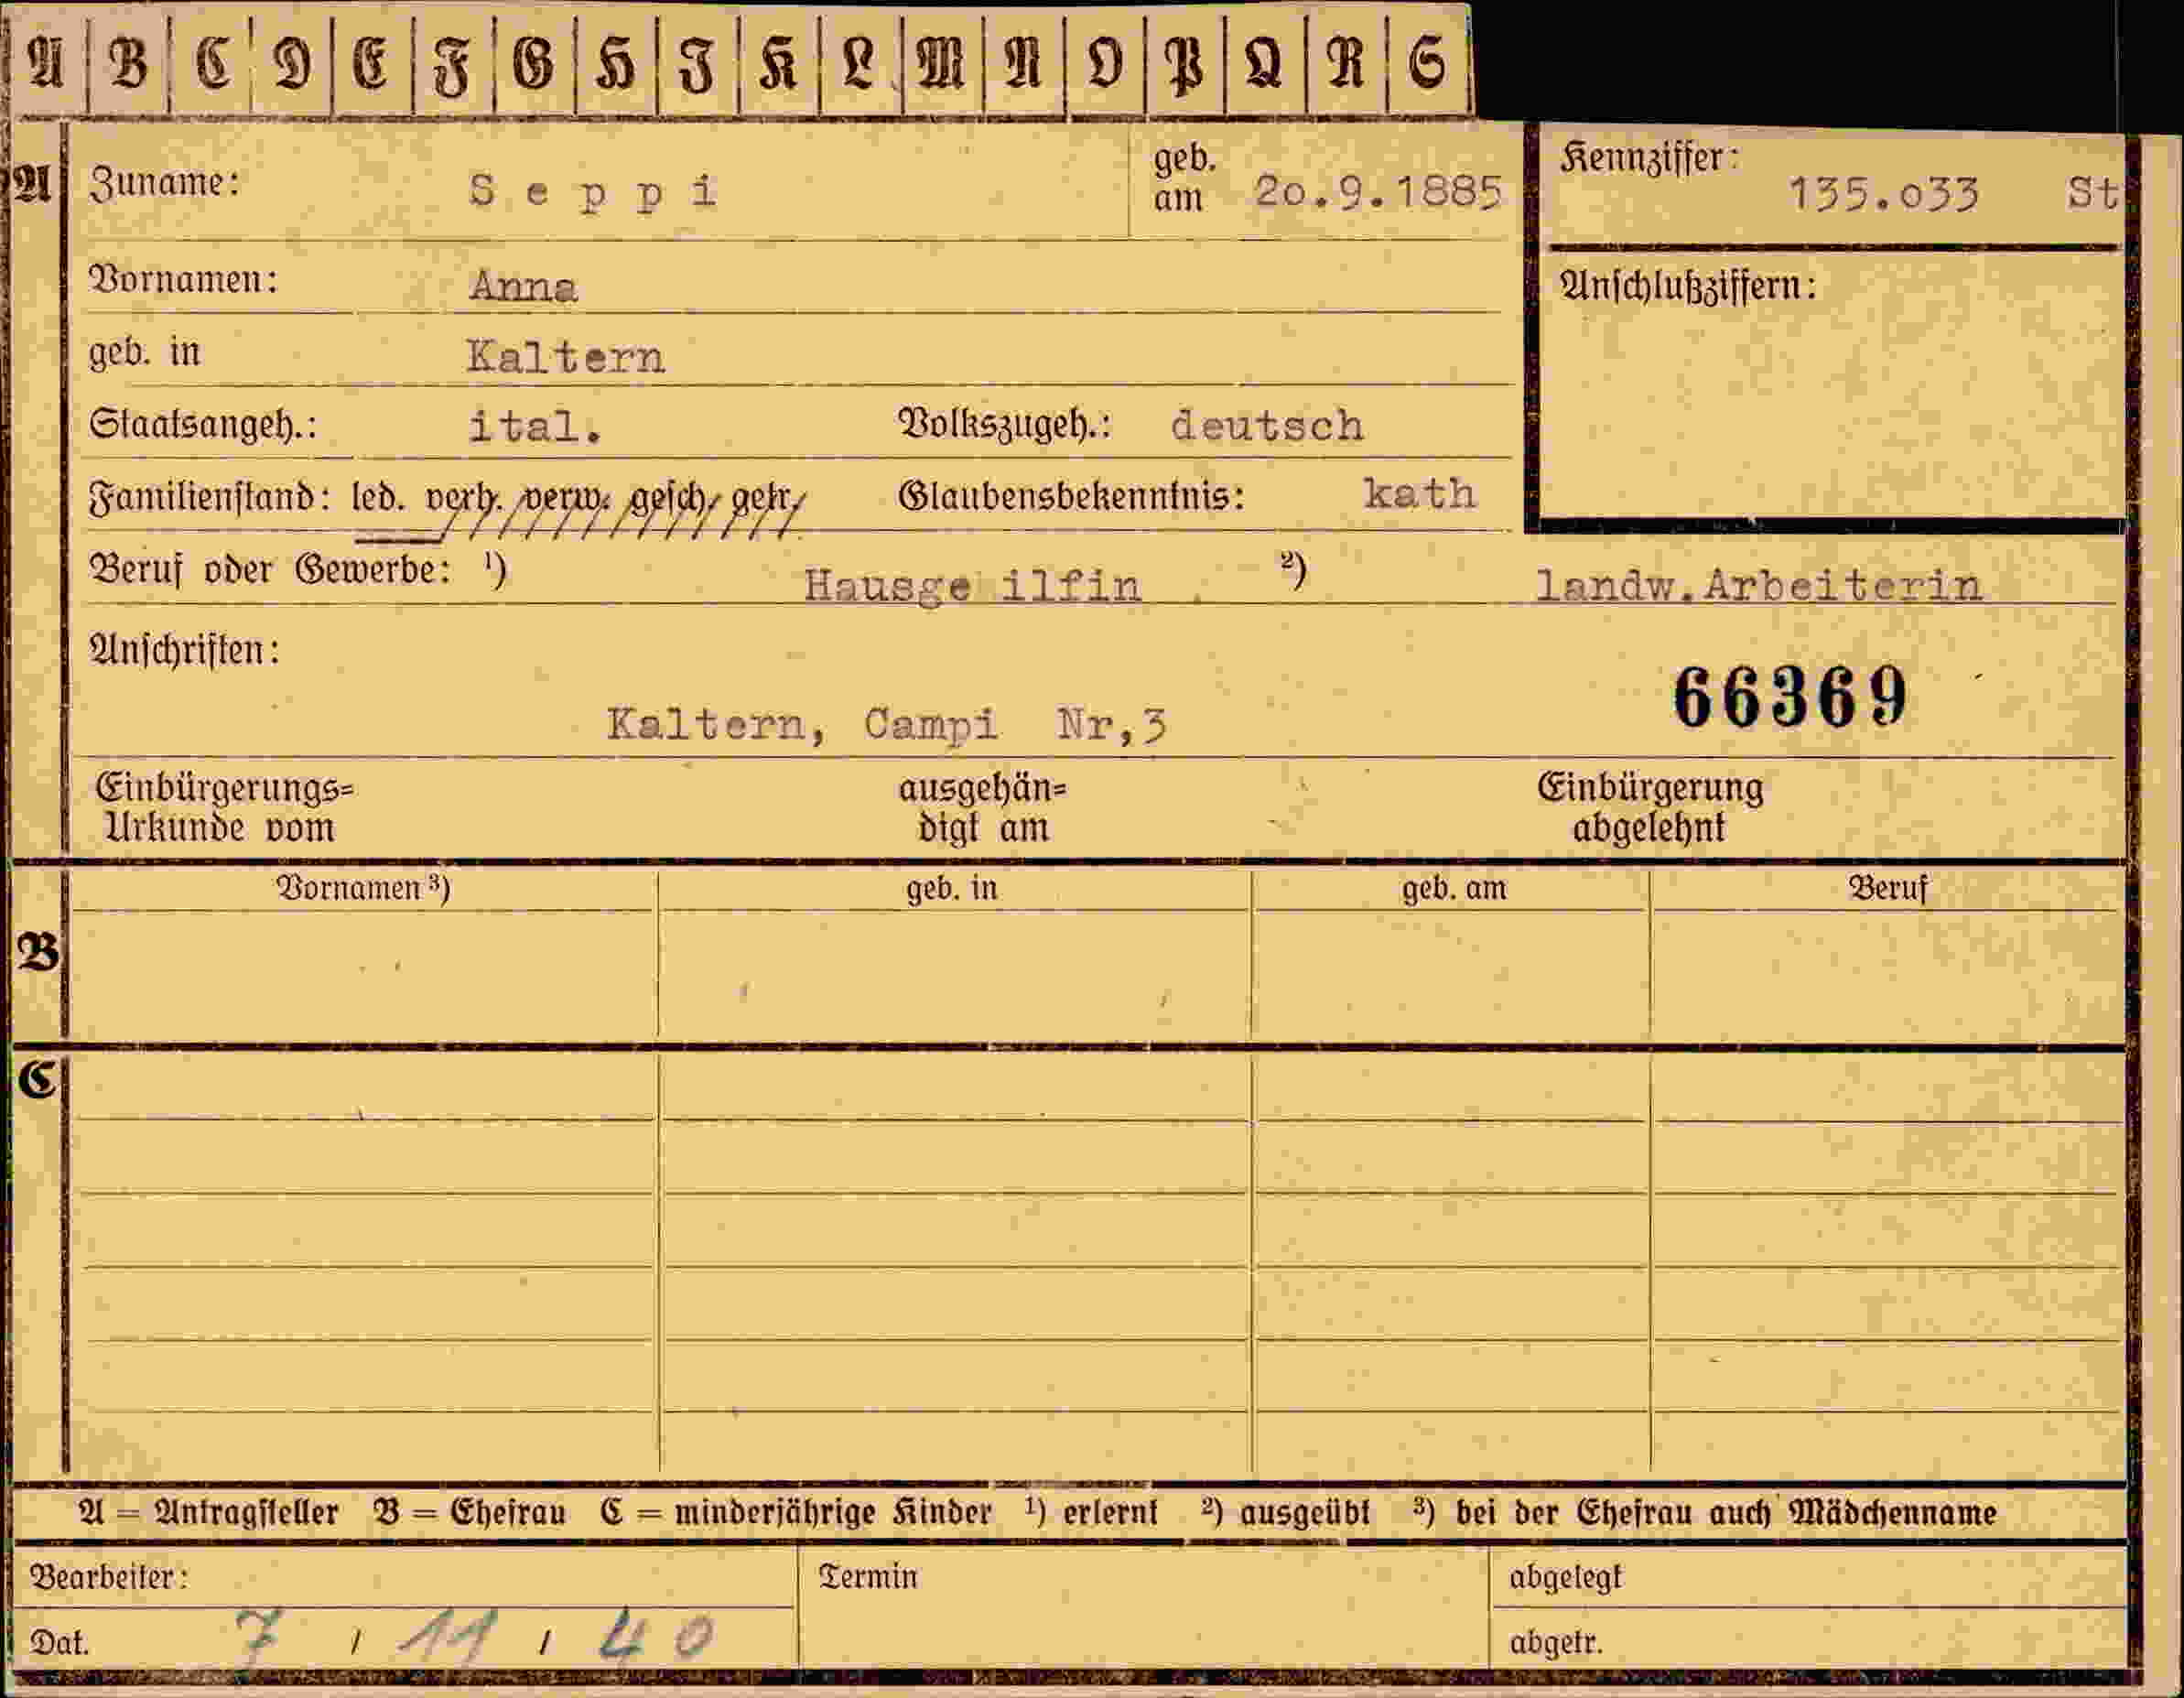 A B C D E F G H I K L M N O P Q R S
A Zuname: Seppi geb. am 20.9.1885 Kennziffer: 135.033 St
Vornamen: Anna Anschlußziffern:
geb. in Kaltern
Staatsangeh.: ital. Volkszugeh.: deutsch
Familienstand: led. verh. verw. gesch. getr. Glaubensbekenntnis: kath
Beruf oder Gewerbe: ¹) Hausge ilfin ²) landw.Arbeiterin
Anschriften:
66369
Kaltern, Campi Nr,3
Einbürgerungs= ausgehän= Einbürgerung
Urkunde vom digt am abgelehnt
Vornamen ³) geb. in geb. am Beruf
B
C
A = Antragsteller B = Ehefrau C = minderjährige Kinder ¹) erlernt ²) ausgeübt ³) bei der Ehefrau auch Mädchenname
Bearbeiter: Termin abgelegt
Dat. 7 / 11 / 40 abgetr.